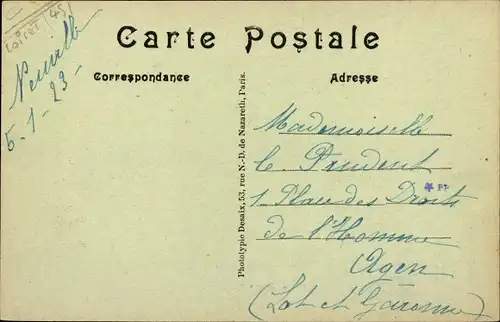 Loiret (45)
Neuville
5-1-23-
Carte Postale
Correspondance
Adresse
Phototypie Desaix, 53, rue N.-D. de Nazareth, Paris.
Mademoiselle
le Prudent
1 Place des Droits
de l'Homme
Agen
(Lot et Garonne)